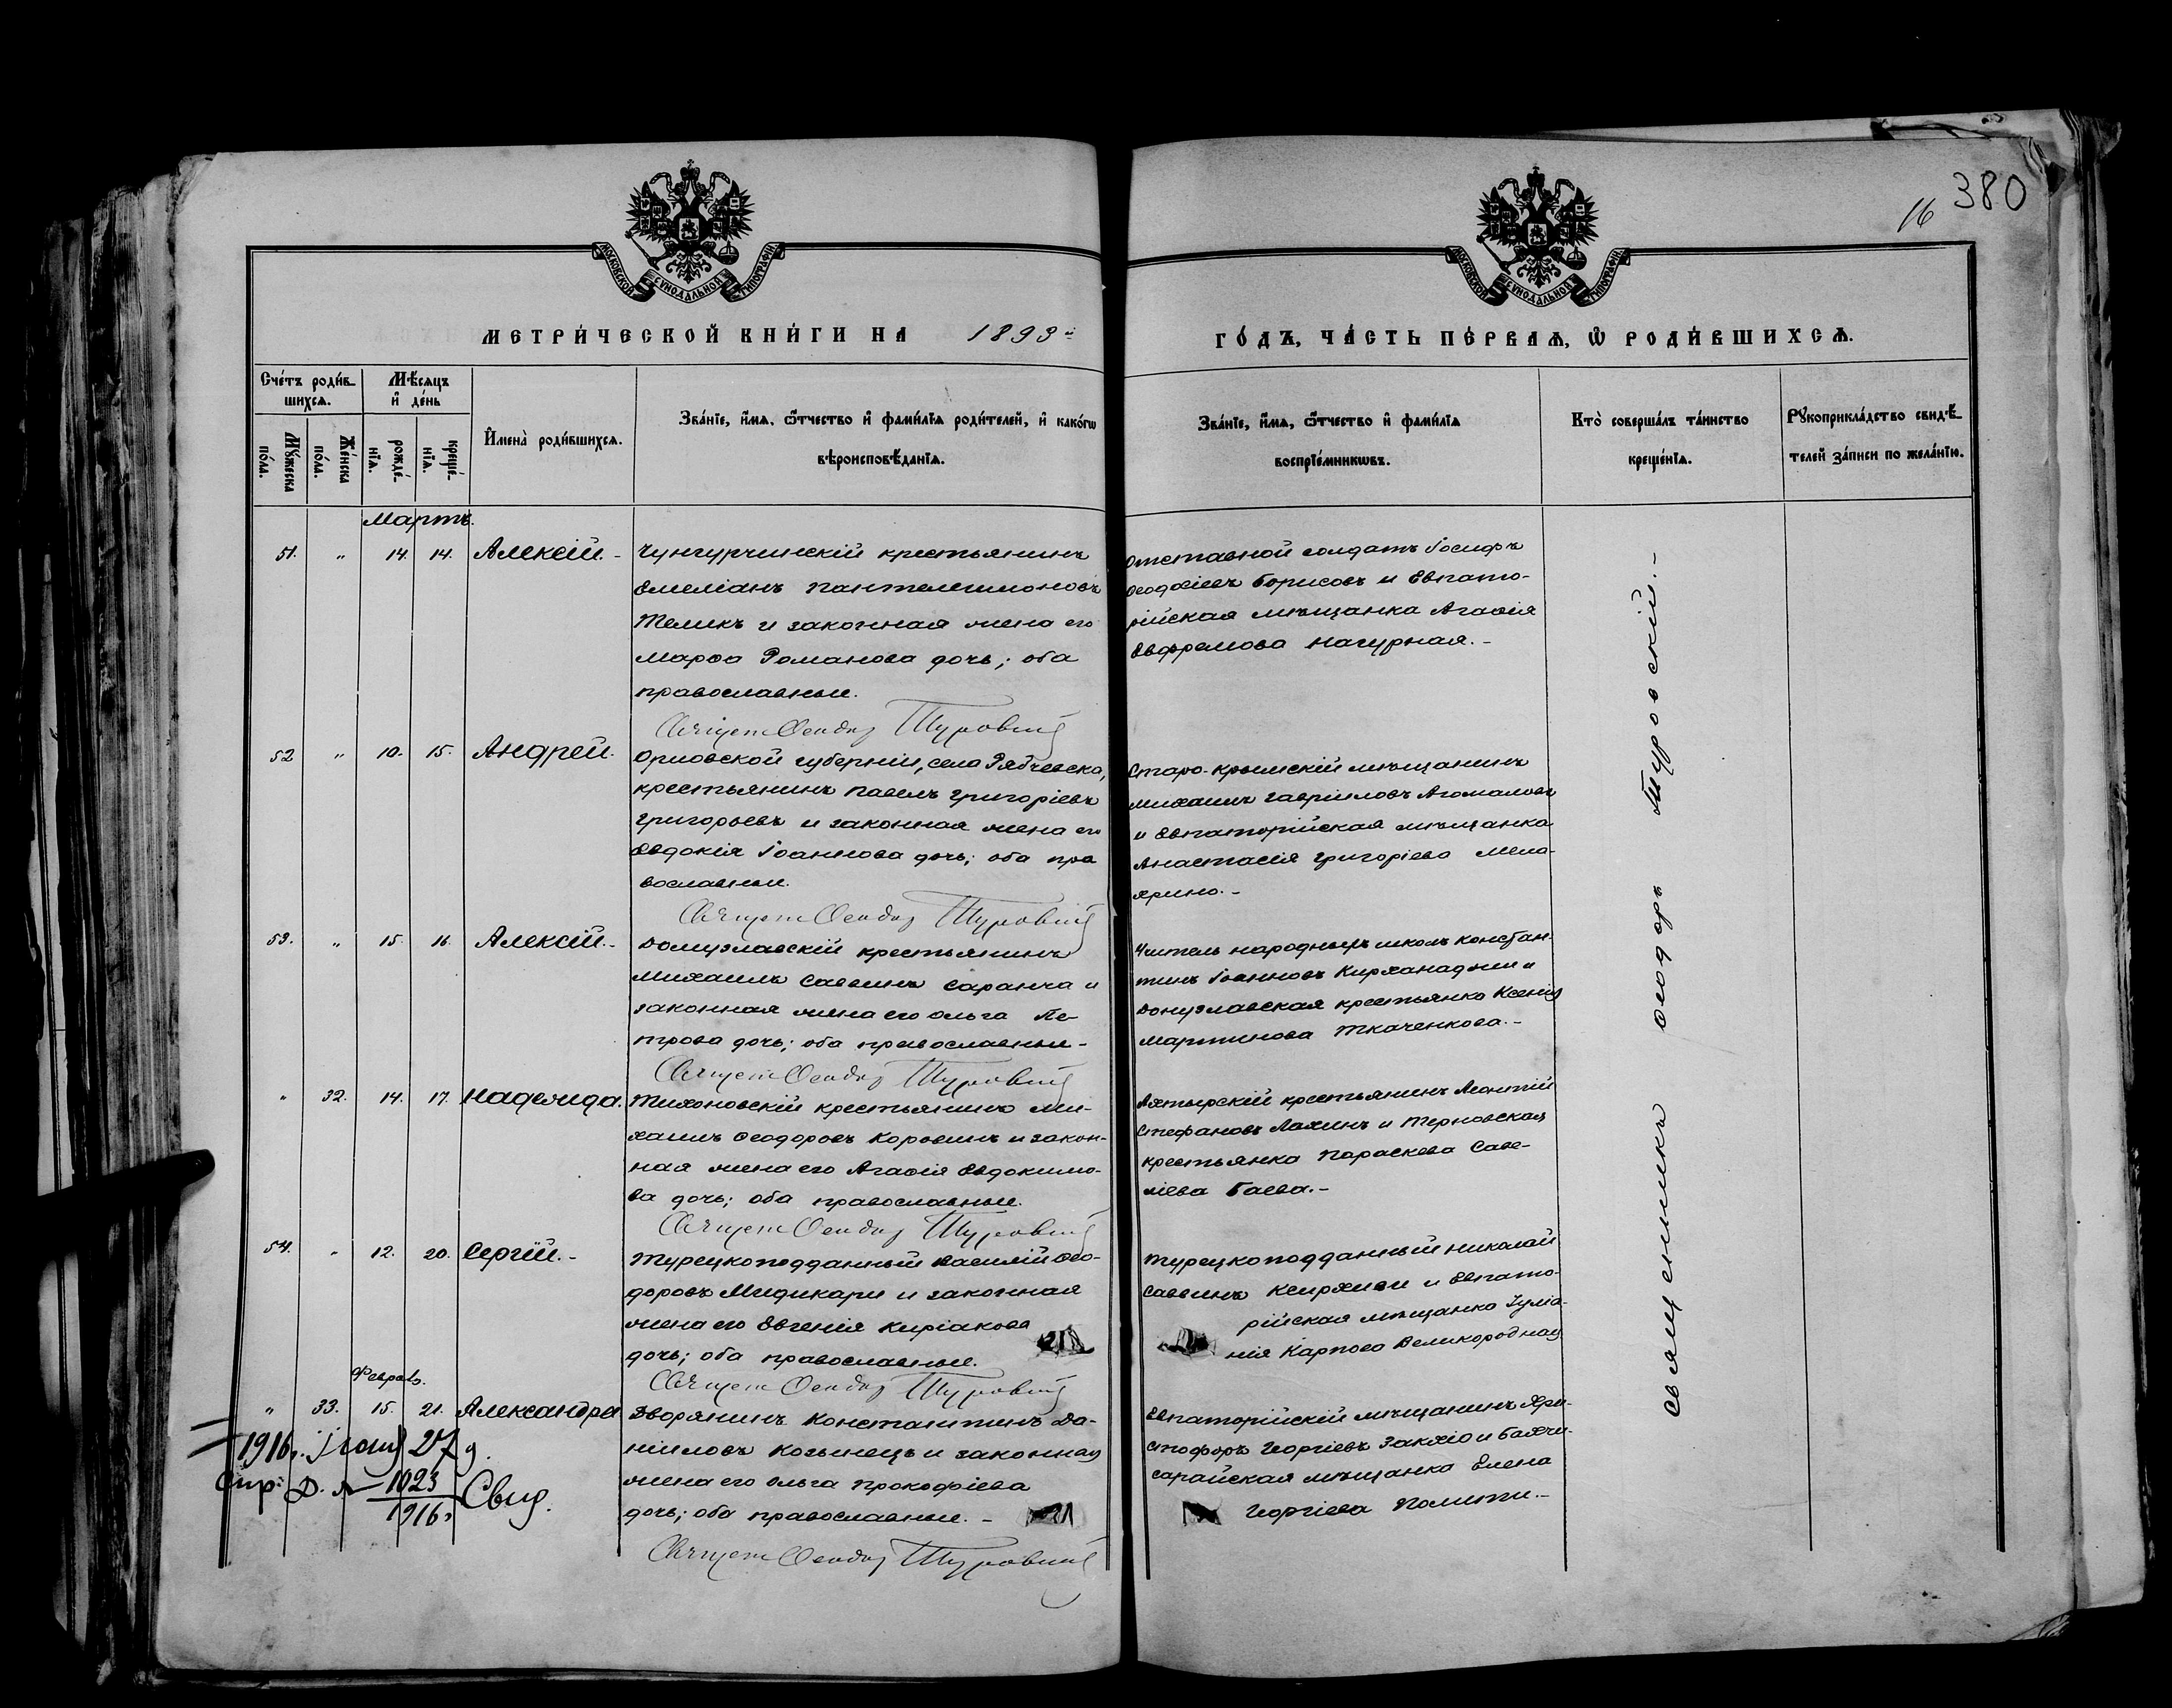 380
16
МОСКОВСКОЙ СѴНОДАЛЬНОЙ ТИПОГРАФІИ
МОСКОВСКОЙ СѴНОДАЛЬНОЙ ТИПОГРАФІИ
МЕТРИ́ЧЕСКОЙ КНИ́ГИ НА 1893й
ГО́ДЪ, ЧА́СТЬ ПЕ́РВАѦ, Ѡ҆ РОДИ́ВШИХСѦ.
Сче́тъ роди́в-
шихсѧ.
Мꙋ́жеска по́ла.
Же́нска по́ла.
Мѣ́сѧцъ
и҆ де́нь
рожде́-
нїѧ.
креще́-
нїѧ.
И҆мена̀ роди́вшихсѧ.
Зва́нїе, и҆́мѧ, ѻ҆́тчество и҆ фами́лїѧ роди́телей, и҆ како́гѡ
вѣроисповѣ́данїѧ.
Зва́нїе, и҆́мѧ, ѻ҆́тчество и҆ фами́лїѧ
воспрїе́мникѡвъ.
Кто̀ соверша́лъ та́инство
креще́нїѧ.
Рꙋкоприкла́дство свидѣ́-
телей за́писи по жела́нїю.
Мартъ.
51. " 14. 14. Алексій.-
Чунгурчинскій крестьянинъ
Емеліанъ Пантелеимоновъ
Теликъ и законная жена его
Марѳа Романова дочь; оба
православные.
Священ Ѳеодор Туровский
Отставной солдатъ Іосифъ
Ѳеодосіевъ Борисовъ и Евпато-
рійская мѣщанка Агаѳія
Евфремова Нагурная.-
52 " 10. 15. Андрей.
Орловской губерніи, села Рябчевска,
крестьянинъ Павелъ Григоріевъ
Григорьевъ и законная жена его
Евдокія Іоаннова дочь; оба пра
вославные.
Священ Ѳеодор Туровский
Старо-крымскій мѣщанинъ
Михаилъ Гавріиловъ
и Евпаторійская мѣщанка
Анастасія Григоріева
53. " 15. 16. Алексій.-
Донузлавскій крестьянинъ
Михаилъ Саввинъ Саранча и
законная жена его Ольга Пе-
трова дочь; оба православные-
Священ Ѳеодор Туровский
Учитель народныхъ школъ Констан-
тинъ Іоанновъ и
Донузлавская крестьянка Ксенія
Мартинова Ткаченкова.-
" 32. 14. 17. Надежда.
Тихоновскій крестьянинъ Ми-
хаилъ Ѳеодоровъ Коровинъ и закон-
ная жена его Агаѳія Евдокимо-
ва дочь; оба православные.
Священ Ѳеодор Туровский
Ахтырскій крестьянинъ Леонтій
Стефановъ Лахинъ и Терновская
крестьянка Параскева Саве-
ліева Баева.-
54. " 12. 20. Сергій.-
Турецкоподданный Василій Ѳео-
доровъ Мидикари и законная
жена его Евгенія Киріакова
дочь; оба православные.
Священ Ѳеодор Туровский
Турецкоподданный Николай
Саввинъ и Евпато-
рійская мѣщанка Іуліа-
нія Карпова Великородная
Февраль.
" 33. 15. 21. Александра
Дворянинъ Константинъ Да-
ніиловъ Козинецъ и законная
жена его Ольга Прокофіева
дочь; оба православные.-
Священ Ѳеодор Туровский
Евпаторійскій мѣщанинъ Хри-
стофоръ Георгіевъ и Бахчи-
сарайская мѣщанка Елена
Георгіева Полити.-
1916г. 27 д.
Д. № 1023
1916г. Свид.
Священникъ Ѳеодоръ Туровскій.-